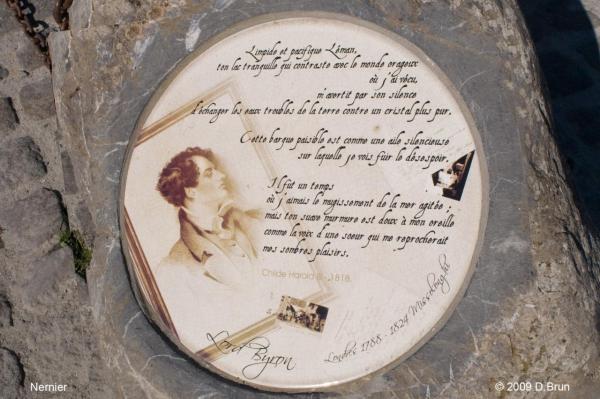 Limpide et pacifique Léman,
ton lac tranquille qui contraste avec le monde orageux
où j'ai vécu,
m'avertit par son silence
d'échanger les eaux troubles de la terre contre un cristal plus pur.
Cette barque paisible est comme une aile silencieuse
sur laquelle je vois fuir le désespoir.
Il fut un temps
où j'aimais le mugissement de la mer agitée ;
mais ton suave murmure est doux à mon oreille
comme la voix d'une soeur qui me reprocherait
mes sombres plaisirs.
Childe Harold III - 1818
Lord Byron
Londres 1788 - 1824 Missolonghi
Nernier
© 2009 D.Brun